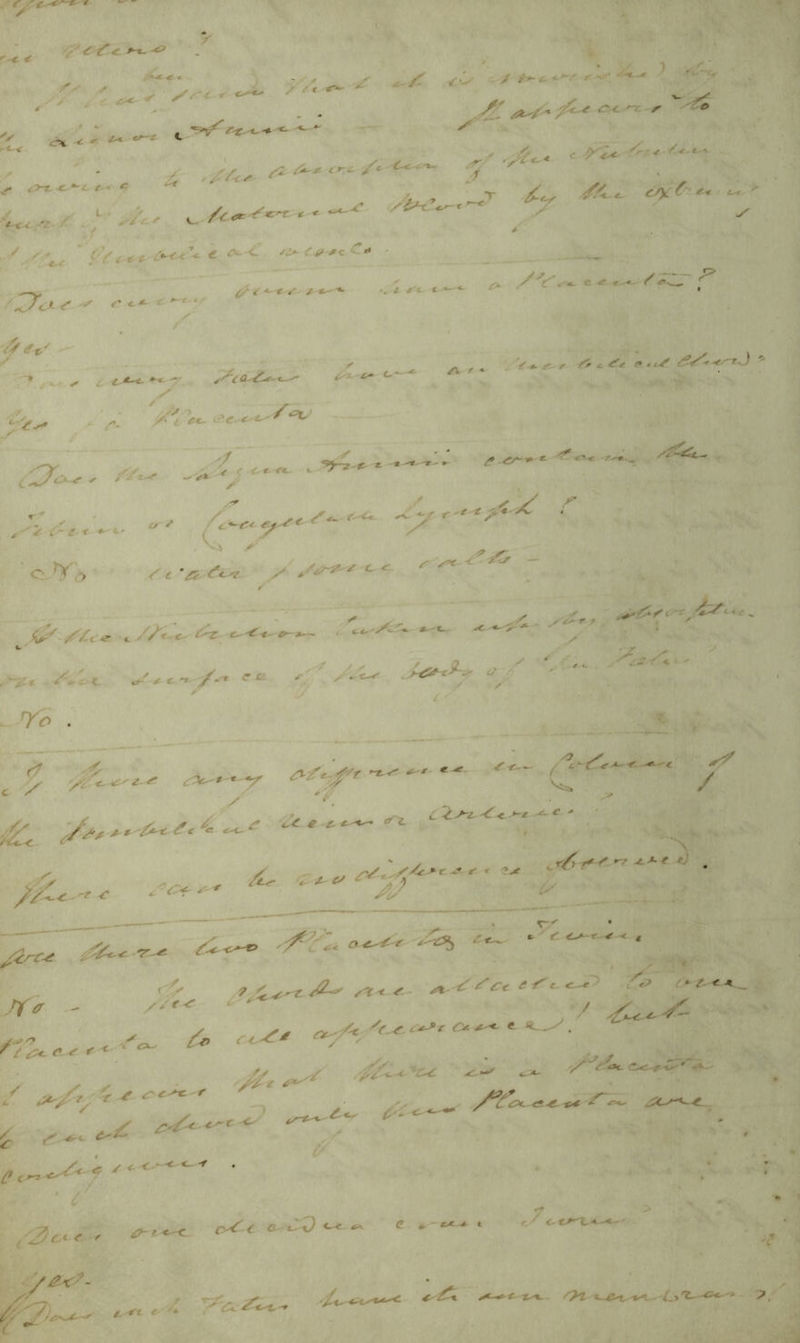 in Utero?
It has been said that it is nourished by
the Liquor Amnii — It appears to
be owing to the absorption of the Nutritive
part of the Maternal Blood by the
of the Umbilical
Does every ovum have a Placenta?
Yes —
Does every Fœtus have an Umbilical Chord?
Yes & a Placenta
Does the Liqua Amnii contain the
Fibrin or Coagulable Lymph?
No water & some salts —
Is the Nutrition taken up by absorption
on the surface of the body of the Fœtus?
No.
Is there any difference in Colour of
the Umbilical vein or Arteries?
There can be no difference observed.
Are there two Placentas in Twins
No — The Chords are attached to one
Placenta to all appearance! but
it appears that there is a Placenta
to each chord only these Placenta are
contiguous.
Does one decidua Twins?
Yes.
Does each Fœtus have its own membranes?